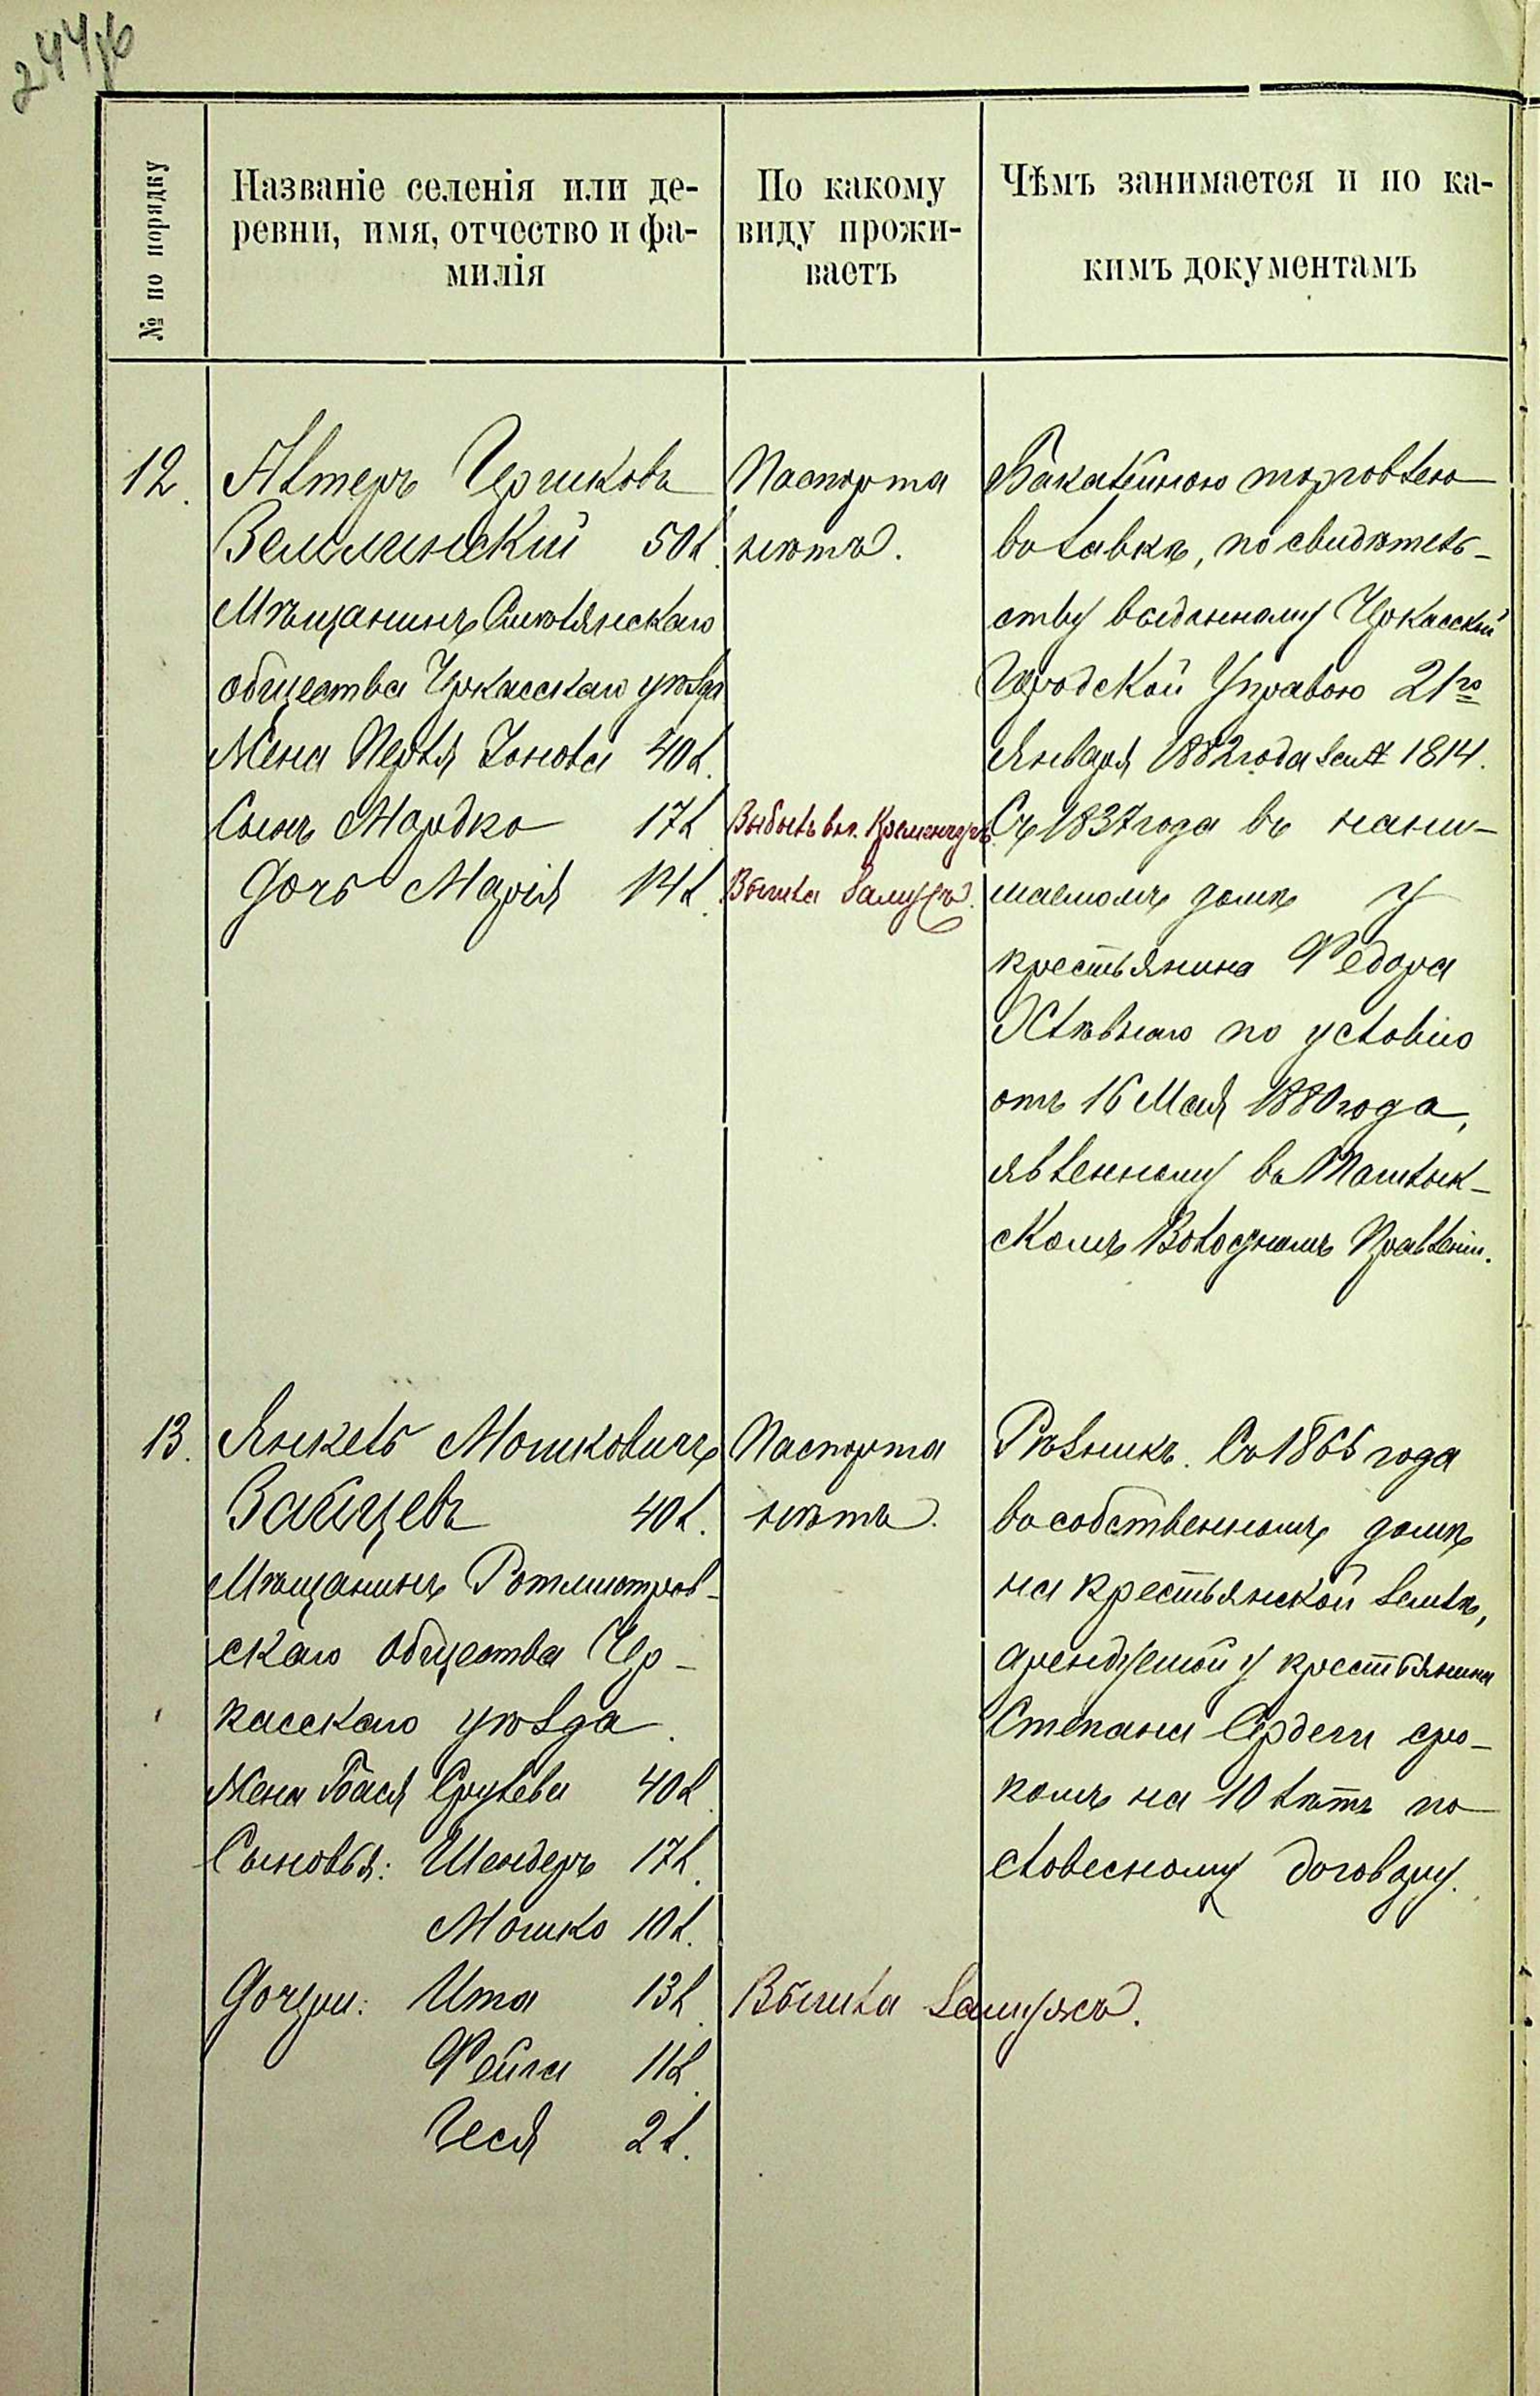 244 об
№ по порядку
Названіе селенія или де-
ревни, имя, отчество и фа-
милія
По какому
виду прожи-
ваетъ
Чѣмъ занимается и по ка-
кимъ документамъ
12.
Алтеръ Гершковъ
Велилинскій 50 л.
Мѣщанинъ Смѣлянскаго
общества Черкасскаго уѣзда
Жена Перля Іонова 40 л.
Сынъ Мордко 17 л.
Дочь Марія 14 л.
Паспорта
нѣтъ.
Выбылъ въ г. Кременчугъ.
Вышла замужъ.
Бакалейною торговлею
въ лавкѣ, по свидѣтель-
ству выданному Черкасской
Городской Управою 21го
Января 1882 года за № 1814.
Съ 1837 года въ нани-
маемомъ домѣ у
крестьянина Федора
Хлѣвнаго по условію
отъ 16 Мая 1880 года,
явленному въ Машлык-
скомъ Волостномъ Правленіи.
13.
Янкель Мошковичъ
Зайцевъ 40 л.
Мѣщанинъ Ротмистров-
скаго общества Чер-
касскаго уѣзда.
Жена Бася Срулева 40 л.
Сыновья: Шендеръ 17 л.
Мошко 10 л.
Дочери: Ита 13 л.
Фейга 11 л.
Геся 2 л.
Паспорта
нѣтъ.
Вышла замужъ.
Рѣзникъ. Съ 1865 года
въ собственномъ домѣ
на крестьянской землѣ,
арендуемой у крестьянина
Степана Сердеги сро-
комъ на 10 лѣтъ по
словесному договору.